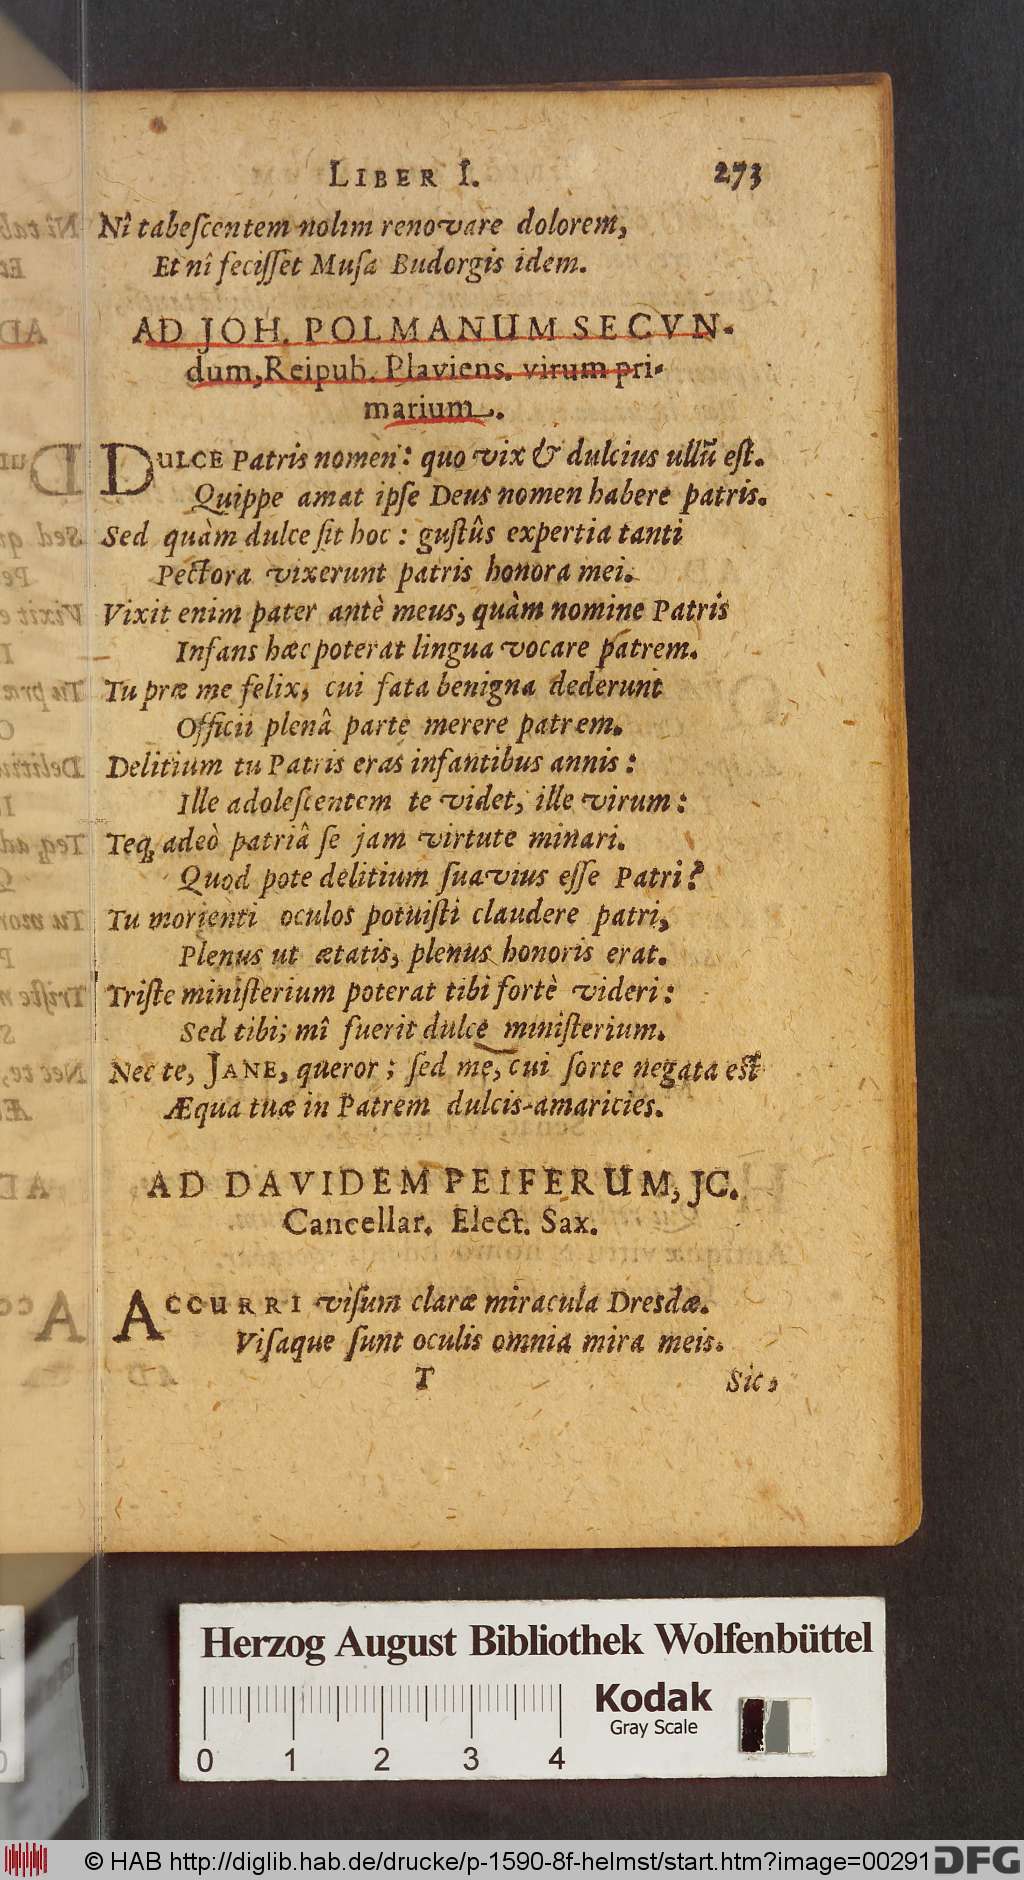 LIBER I. 273
Nî tabeſcentem nolim renovare dolorem,
Et nî feciſſet Muſa Budorgis idem.
AD JOH. POLMANUM SECVN-
dum, Reipub. Plaviens. virum pri-
marium.
DULCE Patris nomen: quo vix & dulcius ullũ eſt.
Quippe amat ipſe Deus nomen habere patris.
Sed quàm dulce ſit hoc: guſtûs expertia tanti
Pectora vixerunt patris honora mei.
Vixit enim pater antè meus, quàm nomine Patris
Infans hæc poterat lingua vocare patrem.
Tu præ me felix, cui fata benigna dederunt
Officii plenâ parte merere patrem.
Delitium tu Patris eras infantibus annis:
Ille adoleſcentem te videt, ille virum:
Teq; adeò patriâ ſe jam virtute minari.
Quod pote delitium ſuavius eſſe Patri?
Tu morienti oculos potuiſti claudere patri,
Plenus ut ætatis, plenus honoris erat.
Triſte miniſterium poterat tibi fortè videri:
Sed tibi; mî fuerit dulce miniſterium.
Nec te, JANE, queror; ſed me, cui ſorte negata eſt
Æqua tuæ in Patrem dulcis-amaricies.
AD DAVIDEM PEIFERUM, JC.
Cancellar. Elect. Sax.
ACCURRI viſum claræ miracula Dresdæ.
Viſaque ſunt oculis omnia mira meis.
T Sic,
Herzog August Bibliothek Wolfenbüttel
Kodak
Gray Scale
0 1 2 3 4
© HAB http://diglib.hab.de/drucke/p-1590-8f-helmst/start.htm?image=00291 DFG